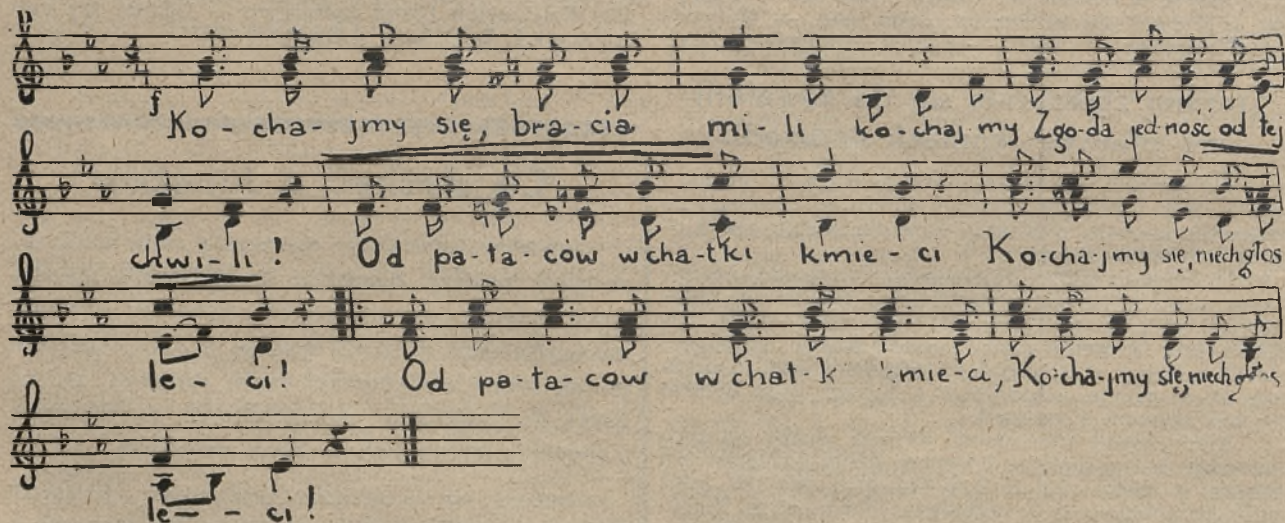 f
Ko - cha - jmy się, bra - cia mi - li ko - chaj my Zgo - da jed - ność od tej
chwi - li! Od pa - ła - ców w cha - tki kmie - ci Ko - cha - jmy się, niech głos
le - ci! Od pa - ła - ców w chat - k mie - ci, Ko - cha - jmy się, niech głos
le - ci!